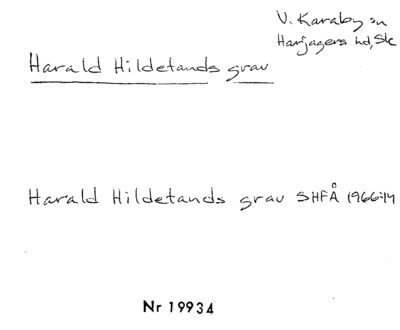 V. Karaby sn
Harjagers hd, Sk
Harald Hildetands grav
Harald Hildetands grav SHFÅ 1966:14
Nr 19934